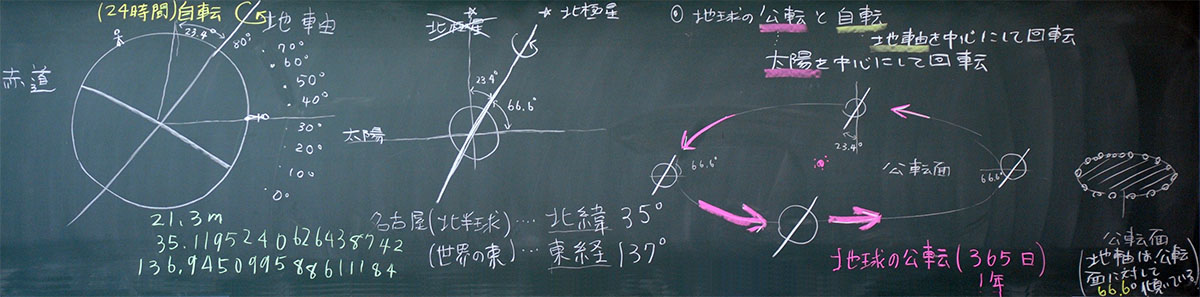 (24時間)自転
地軸
23.4°
80°
70°
60°
50°
40°
30°
20°
10°
0°
赤道
21.3m
35.1195240626438742
136.945099588611184
北極星
北極星
23.4°
66.6°
太陽
名古屋(北半球)‥‥北緯35°
(世界の東)‥‥東経137°
◎地球の公転と自転
地軸を中心にして回転
太陽を中心にして回転
23.4°
66.6°
公転面
66.6°
地球の公転(365日)
1年
公転面
(地軸は公転
面に対して
66.6°傾いている)